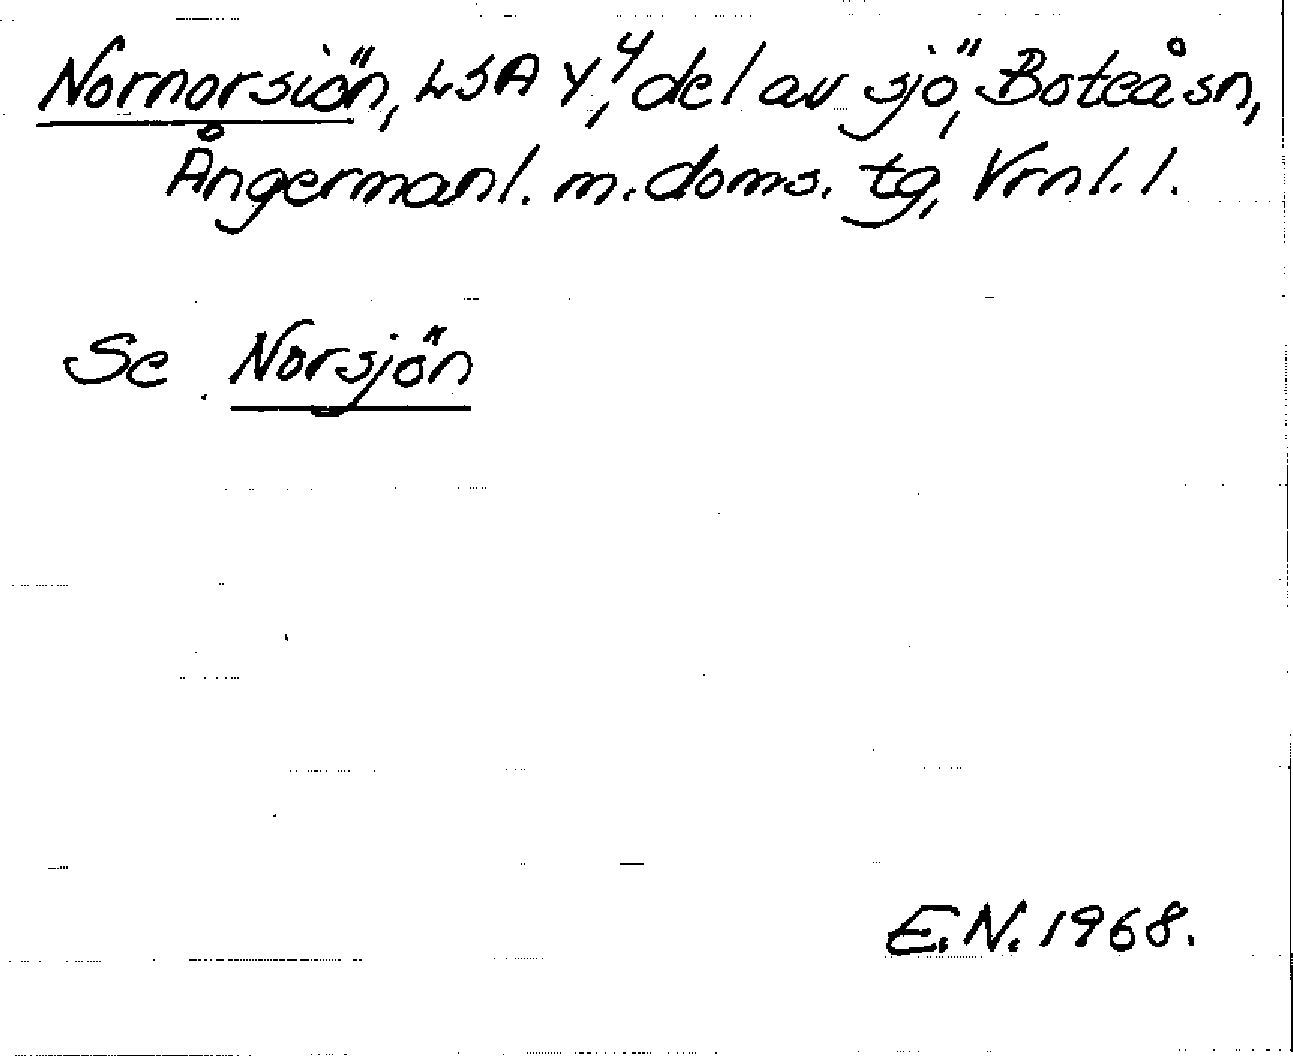 Nornorsiön, LSA Y,⁴ del av sjö, Boteå sn,
Ångermanl. m. doms. tg, Vrnl. l.
Se Norsjön
E.N. 1968.